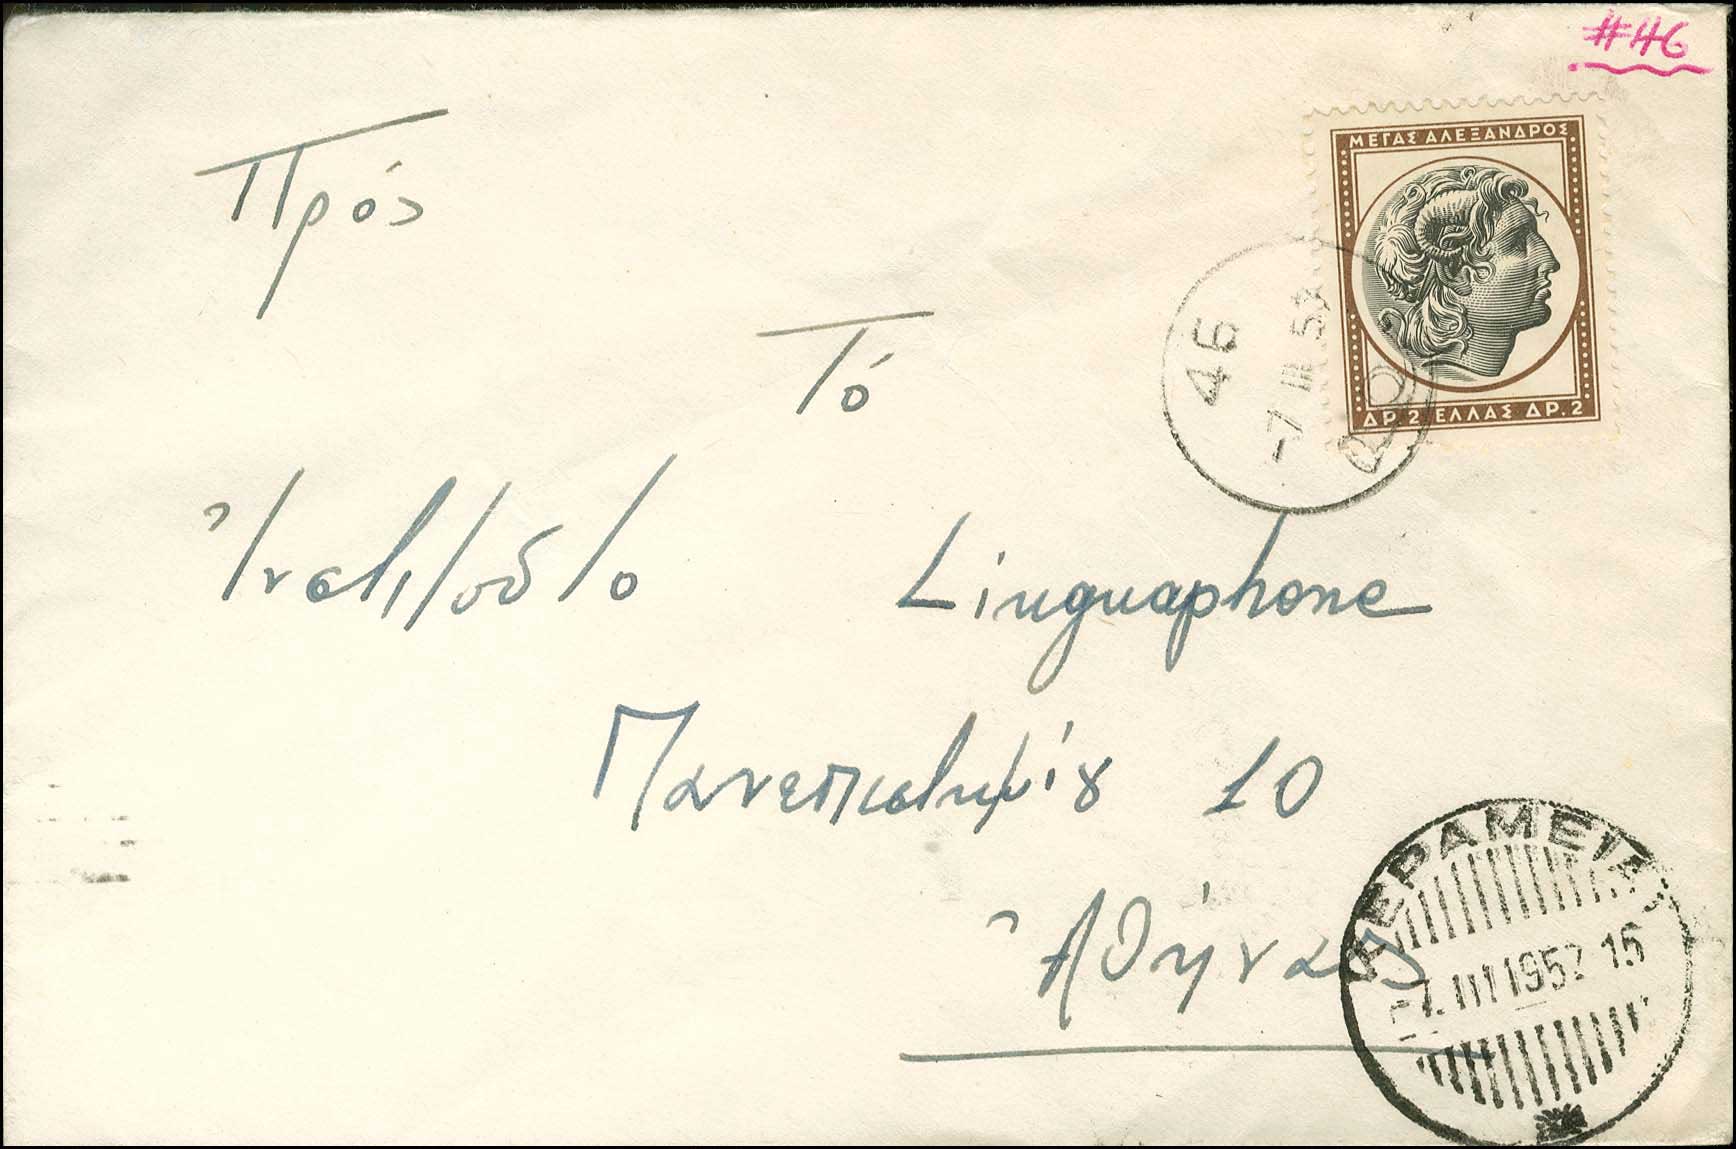 #46
ΜΕΓΑΣ ΑΛΕΞΑΝΔΡΟΣ
ΔΡ.2 ΕΛΛΑΣ ΔΡ.2
46
-7 III 57
ΑΓΡΟΤ.
Πρός
Τό
Ἰνστιτοῦτο Linguaphone
Πανεπιστημίȣ 10
Ἀθήνας
ΚΕΡΑΜΕΙΑ
-7.III 1957 15